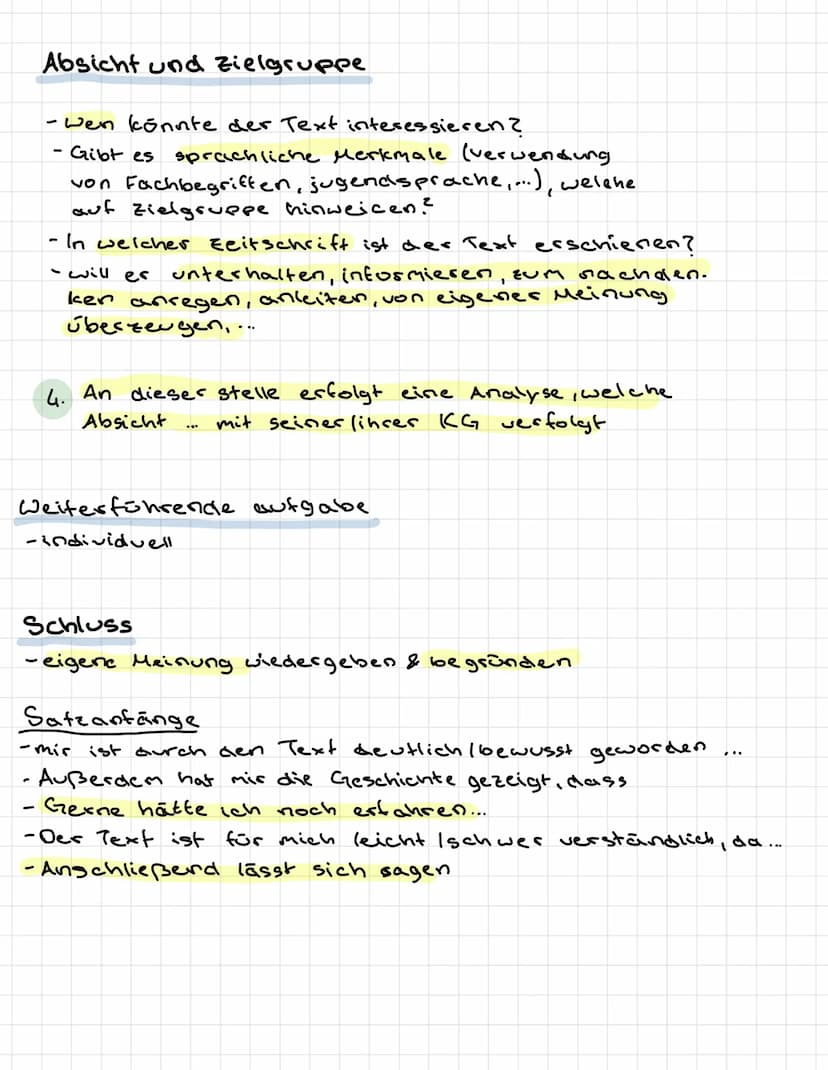 Absicht und Zielgruppe
- Wen könnte der Text interessieren?
- Gibt es sprachliche Merkmale (Verwendung
von Fachbegriffen, jugendsprache,...), welche
auf Zielgruppe hinweisen?
- In welcher Zeitschrift ist der Text erschienen?
- will er unterhalten, informieren, zum nachden-
ken anregen, anleiten, von eigener Meinung
überzeugen,...
4. An dieser Stelle erfolgt eine Analyse, welche
Absicht ... mit seiner/ihrer KG verfolgt
Weiterführende aufgabe
- individuell
Schluss
- eigene Meinung wiedergeben & begründen
Satzanfänge
- mir ist durch den Text deutlich/bewusst geworden ...
- Außerdem hat mir die Geschichte gezeigt, dass
- Gerne hätte ich noch erfahren...
- Der Text ist für mich leicht/schwer verständlich, da ...
- Anschließend lässt sich sagen